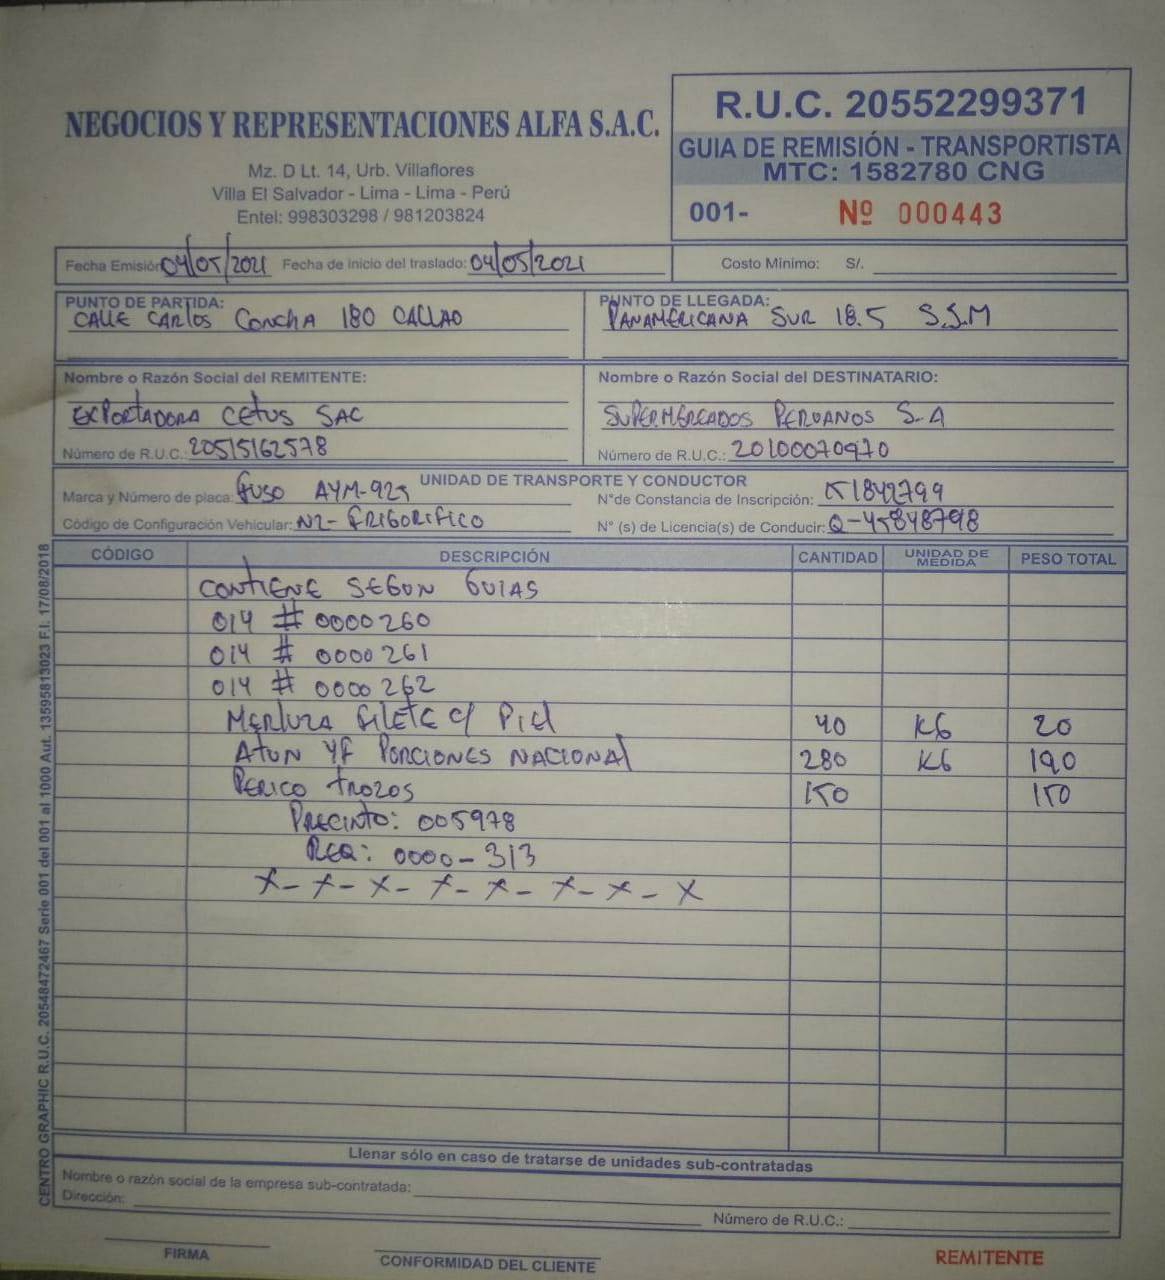 NEGOCIOS Y REPRESENTACIONES ALFA S.A.C.
Mz. D Lt. 14, Urb. Villaflores
Villa El Salvador - Lima - Lima - Perú
Entel: 998303298 / 981203824
R.U.C. 20552299371
GUIA DE REMISIÓN - TRANSPORTISTA
MTC: 1582780 CNG
001- Nº 000443
Fecha Emisión 04/05/2021 Fecha de inicio del traslado: 04/05/2021 Costo Mínimo: S/.
PUNTO DE PARTIDA: PUNTO DE LLEGADA:
CALLE CARlOS CONCHA 180 CALLAO PANAMERICANA SUR 18.5 S.J.M
Nombre o Razón Social del REMITENTE: Nombre o Razón Social del DESTINATARIO:
EXPORTADORA CETUS SAC SUPERMERCADOS PERUANOS S.A
Número de R.U.C.: 20515162578 Número de R.U.C.: 20100070970
UNIDAD DE TRANSPORTE Y CONDUCTOR
Marca y Número de placa: FUSO AYM-925 N°de Constancia de Inscripción: 151842799
Código de Configuración Vehicular: N2- FRIGORIFICO N° (s) de Licencia(s) de Conducir: Q-45848798
CÓDIGO DESCRIPCIÓN CANTIDAD UNIDAD DE MEDIDA PESO TOTAL
CONTIENE SEGUN GUIAS
014 # 0000260
014 # 0000261
014 # 0000262
MERLUZA FILETE C/ PIEl 40 KG 20
ATUN YF PORCIONES NACIONAl 280 KG 190
PERICO TROZOS 150 150
PRECINTO: 005978
REQ: 0000-313
X-X-X-X-X-X-X-X
Llenar sólo en caso de tratarse de unidades sub-contratadas
Nombre o razón social de la empresa sub-contratada:
Dirección: Número de R.U.C.:
FIRMA CONFORMIDAD DEL CLIENTE REMITENTE
CENTRO GRAPHIC R.U.C. 20548472467 Serie 001 del 001 al 1000 Aut. 13595813023 F.I. 17/08/2018